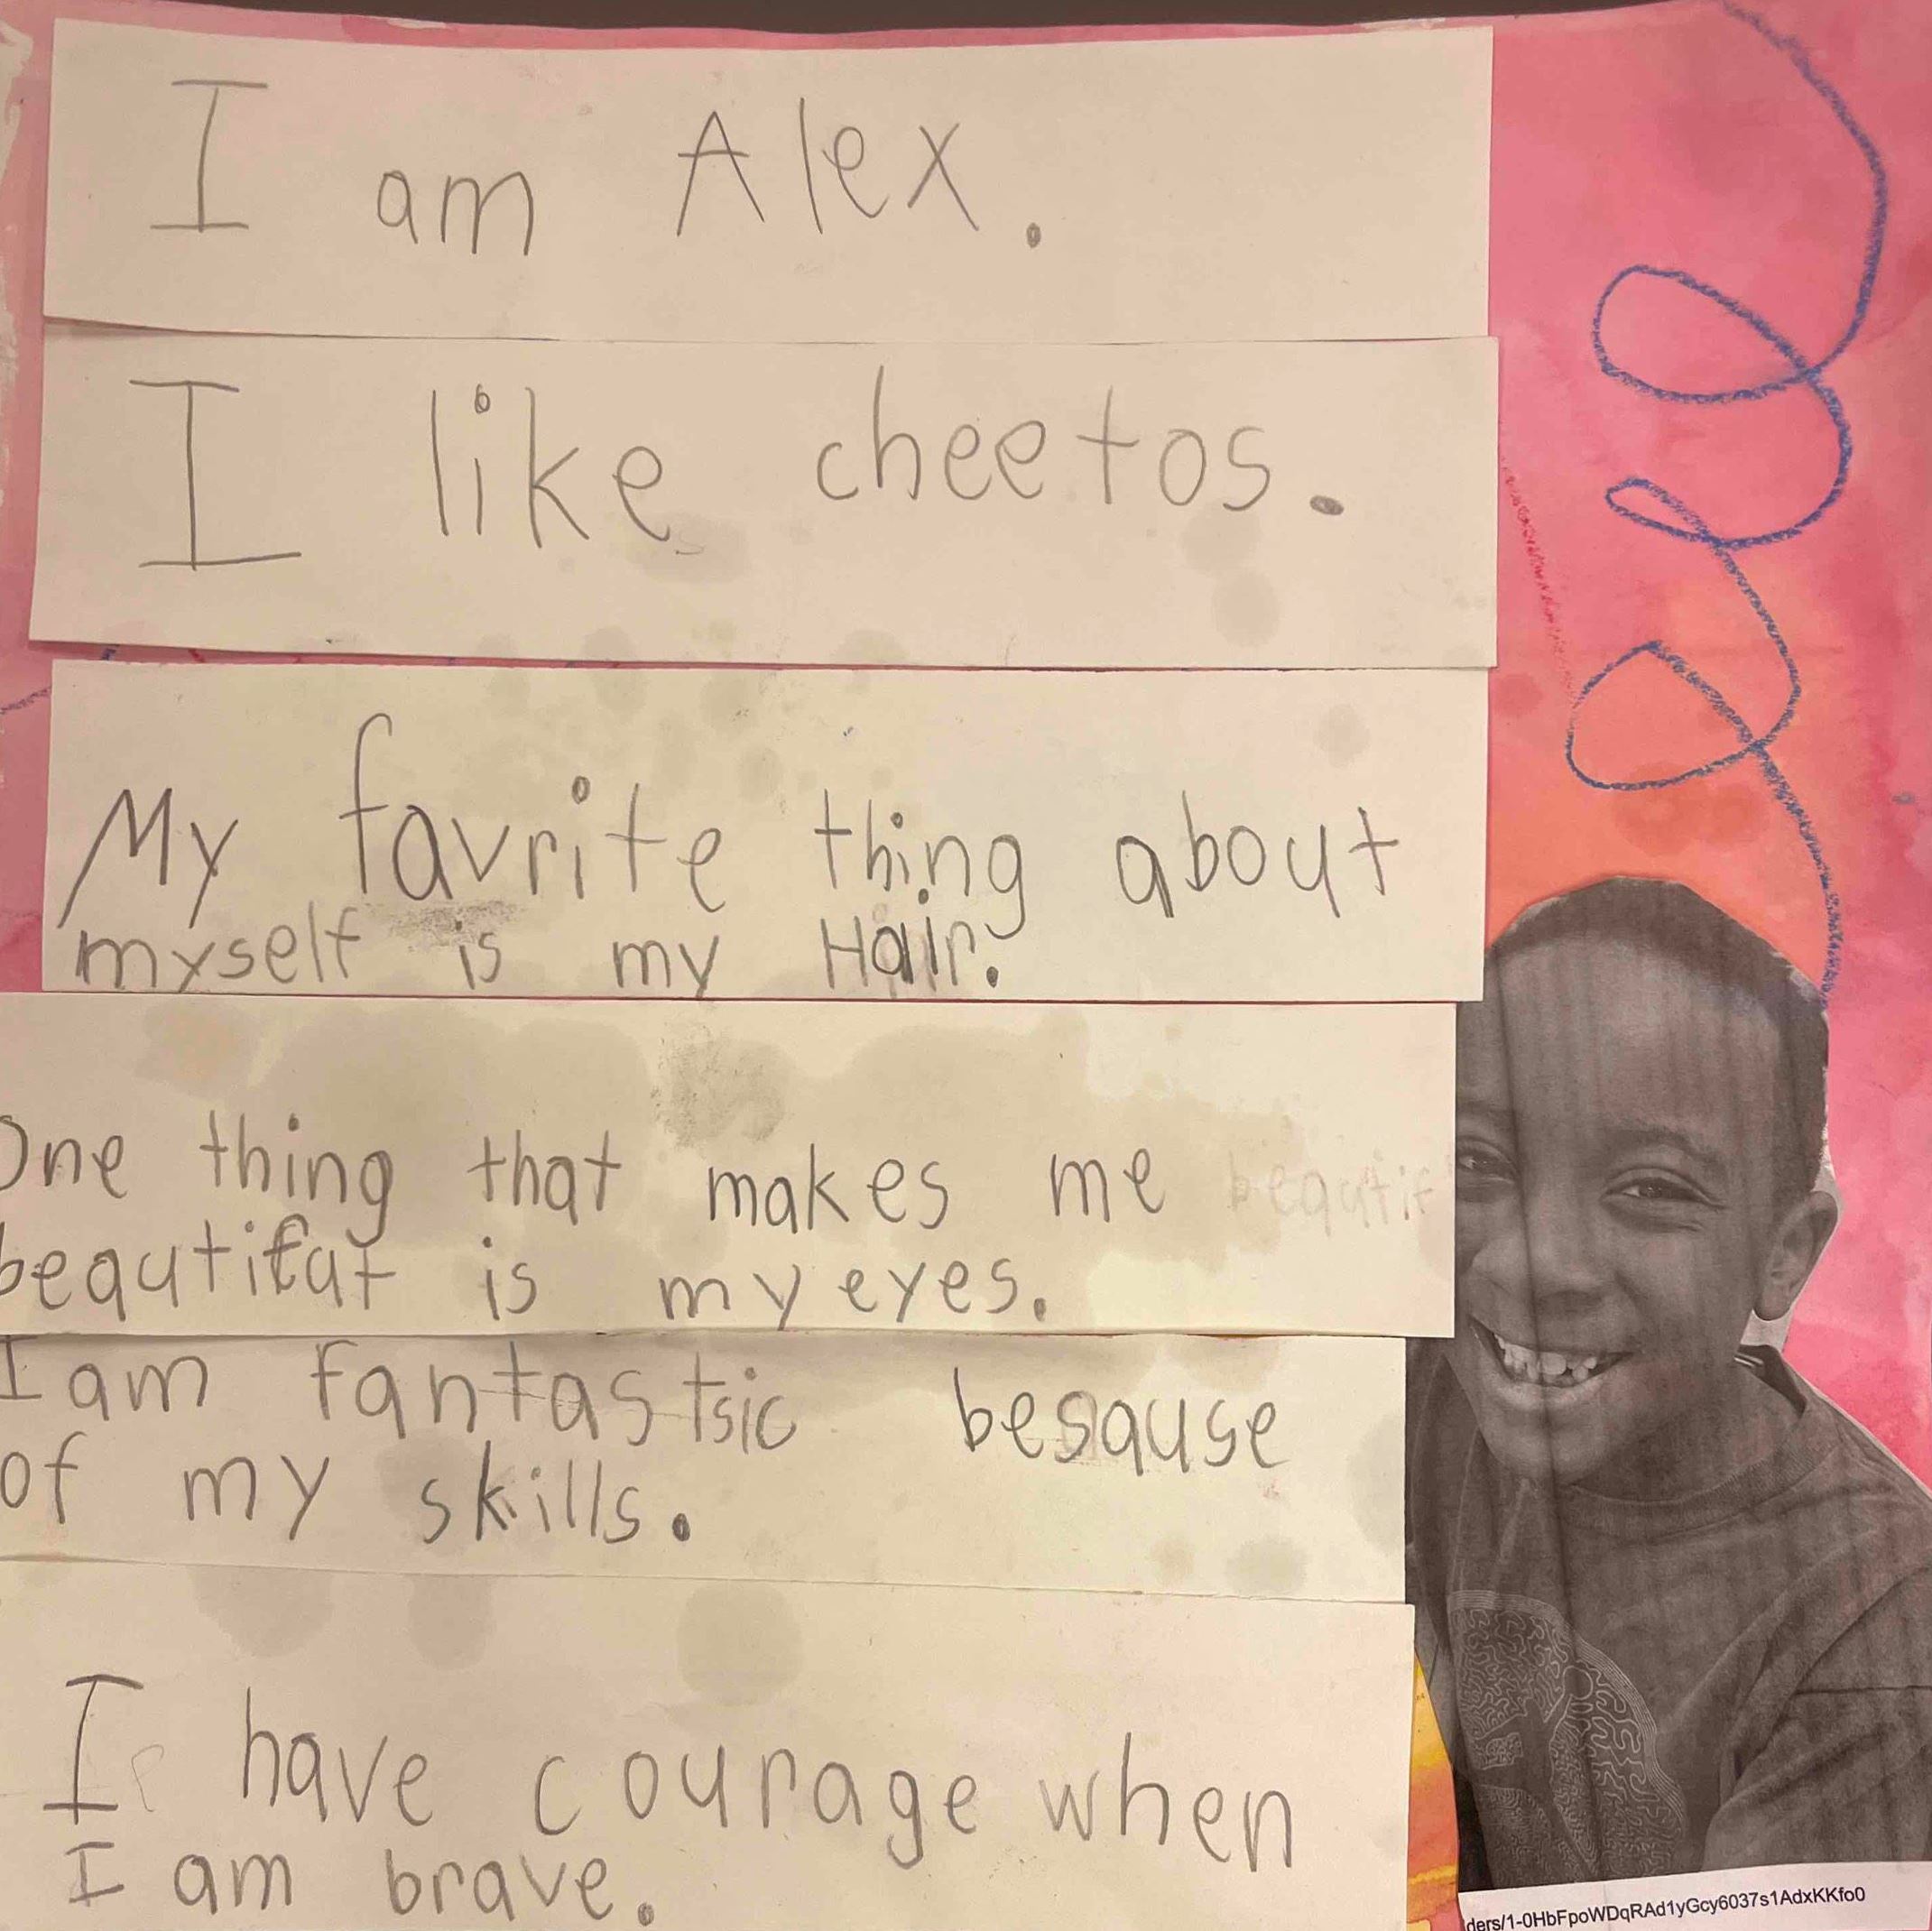 I am Alex.
I like cheetos.
My favrite thing about
myself is my Hair.
One thing that makes me beautif
beautifat is my eyes.
I am fantastsic
besause
of my skills.
I have courage when
I am brave.
ders/1-0HbFpoWDqRAd1yGcy6037s1AdxKKfo0